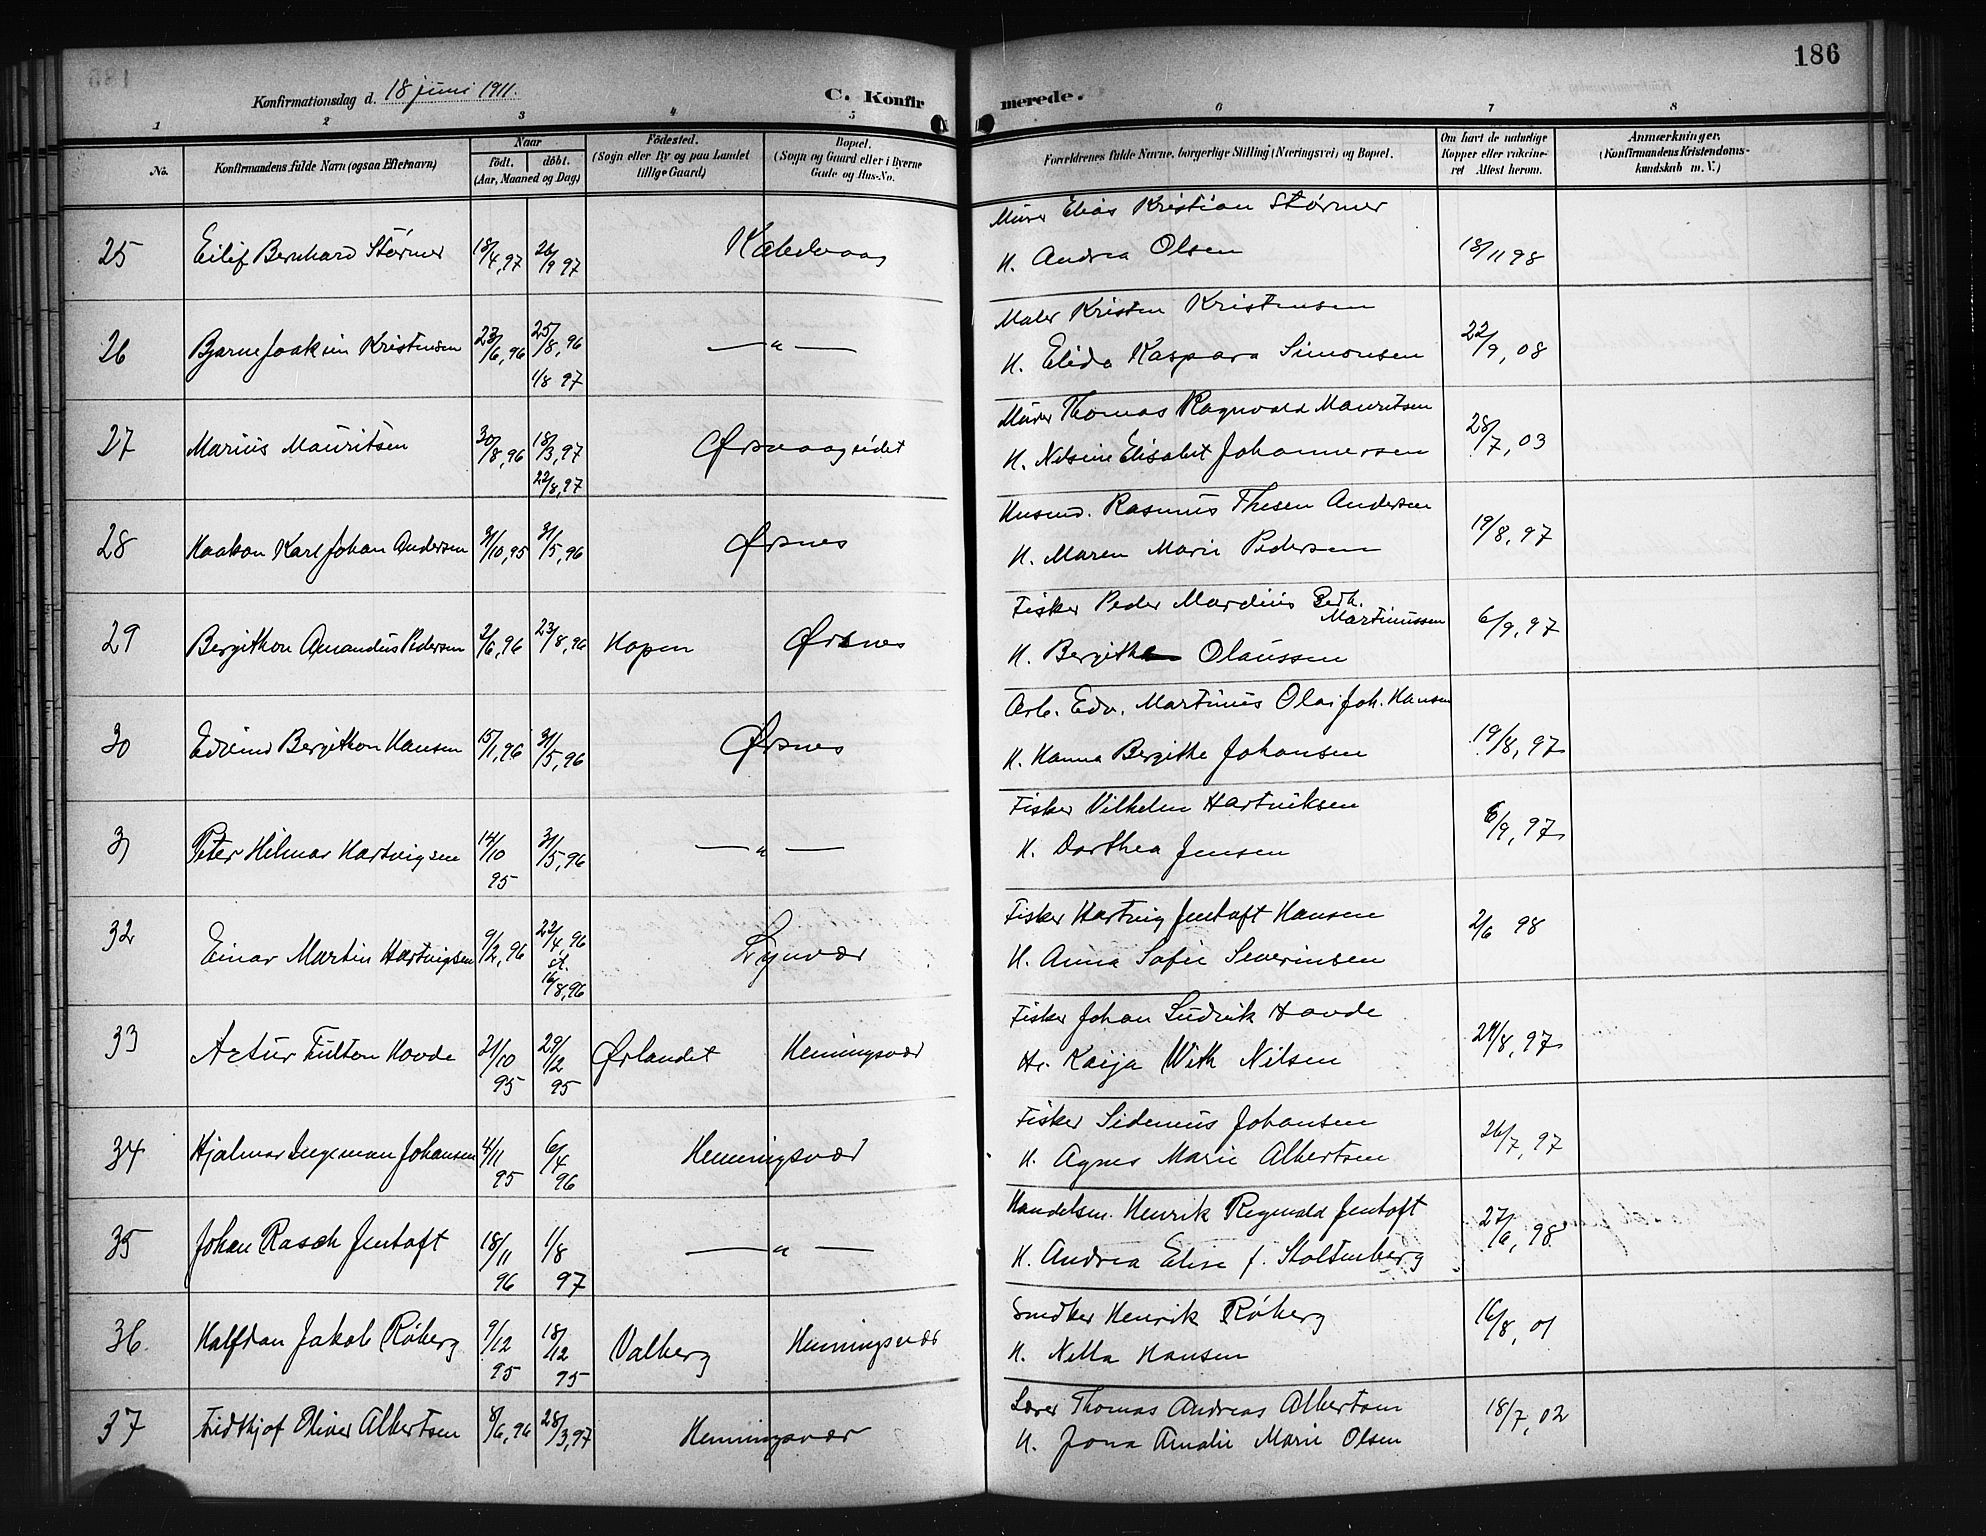 186
Konfirmationsdag d. 18 juni 1911.
C. Konfirmerede.
1 2 3 4 5 6 7 8
No.
Konfirmandens fulde Navn (ogsaa Efternavn)
Naar
födt. döbt.
(Aar, Maaned og Dag)
Födested.
(Sogn eller By og paa Landet
tillige Gaard)
Bopæl.
(Sogn og Gaard eller i Byerne
Gade og Hus-No.
Forældrenes fulde Navne, borgerlige Stilling (Næringsvei) og Bopæl.
Om havt de naturlige
Kopper eller vakcine-
ret Attest herom.
Anmærkninger.
(Konfirmandens Kristendoms-
kundskab m. V.)
25 Eilif Bernhard Størmer 18/4, 97 26/9 97 Kabelvaag
Murer Elias Kristian Størmer
H. Andrea Olsen
18/11 98
26 Bjarne Joakim Kristensen 23/6, 96 25/8, 96 — " —
1/8 97
Maler Kristen Kristensen
H. Elida Kaspara Simonsen
22/9, 08
27 Marius Mauritsen 30/8, 96 18/3, 97 Ørsvaageidet
22/8, 97
Murer Thomas Ragnvald Mauritsen
H. Nelsine Elisabet Johannessen
28/7, 03
28 Haakon Karl Johan Andersen 31/10, 95 31/5, 96 Ørsnes
Husmd. Rasmus Thesen Andersen
H. Maren Marie Pedersen
19/8, 97
29 Bergithon Amandus Pedersen 2/6, 96 23/8, 96 Hopen Ørsnes
Fisker Peder Mardius Bedh.
Martinussen
H. Bergithe Olaussen
6/9, 97
30 Edvind Bergithon Hansen 15/1, 96 31/5, 96 Ørsnes
Arb. Edv. Martinus Olai Joh. Hansen
H. Hanna Bergithe Johansen
19/8, 97
31 Peter Hilmar Hartvigsen 14/10 95 31/5, 96 — " —
Fisker Vilhelm Hartviksen
H. Dorthea Jensen
6/9, 97
32 Einar Martin Hartvigsen 9/2, 96 22/4, 96 st. 16/8, 96 Lyngvær
Fisker Hartvig Jentoft Hansen
H. Anna Sofie Severinsen
2/6 98
33 Artur Fulton Hovde 21/10 95 29/12 95 Ørlandet Henningsvær
Fisker Johan Ludvik Hovde
H. Kaija With Nilsen
24/8, 97
34 Hjalmar Ingeman Johansen 4/11 95 6/4 96 Henningsvær
Fisker Sidenius Johansen
H. Agnes Marie Albertsen
26/7, 97
35 Johan Rasch Jentoft 18/11 96 1/8 97 — " —
Handelsm. Henrik Regnvald Jentoft
H. Andrea Elise f. Stoltenberg
27/6, 98
36. Halfdan Jakob Röberg 9/12 95 18/12 95 Valberg Henningsvær
Snedker Henrik Röberg
H. Nella Hansen
16/8, 01
37 Fridthjof Oliver Albertsen 8/6, 96 28/3, 97 Henningsvær
Lærer Thomas Andreas Albertsen
H. Jona Amalie Marie Olsen
18/7, 02